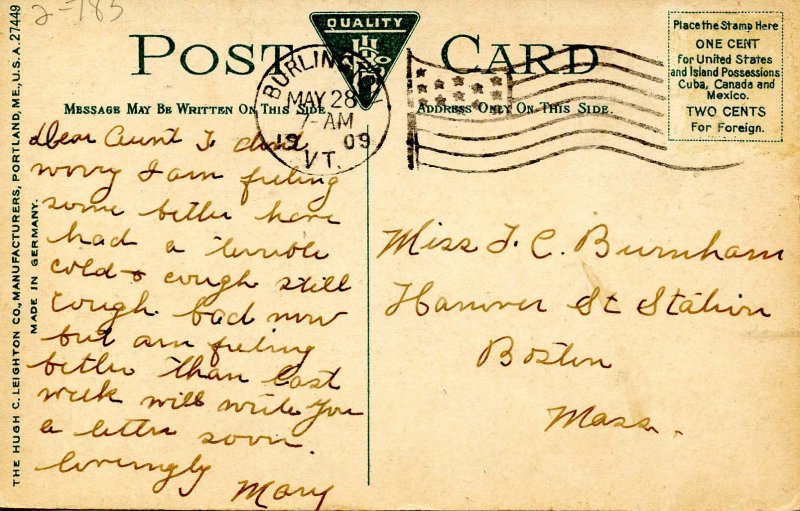 2-785
QUALITY
POST CARD
MESSAGE MAY BE WRITTEN ON THIS SIDE
ADDRESS ONLY ON THIS SIDE.
Place the Stamp Here
ONE CENT
For United States
and Island Possessions
Cuba, Canada and
Mexico.
TWO CENTS
For Foreign.
MAY 28
-AM
1909
VT.
THE HUGH C. LEIGHTON CO., MANUFACTURERS, PORTLAND, ME., U.S.A. 27449
MADE IN GERMANY.
Dear Aunt T. dont
worry I am feeling
some better have
had a terrible
cold & cough still
cough bad now
but am feeling
better than last
week will write you
a letter soon.
lovingly
Mary
Miss T. C. Burnham
Hanover St Station
Boston
Mass.